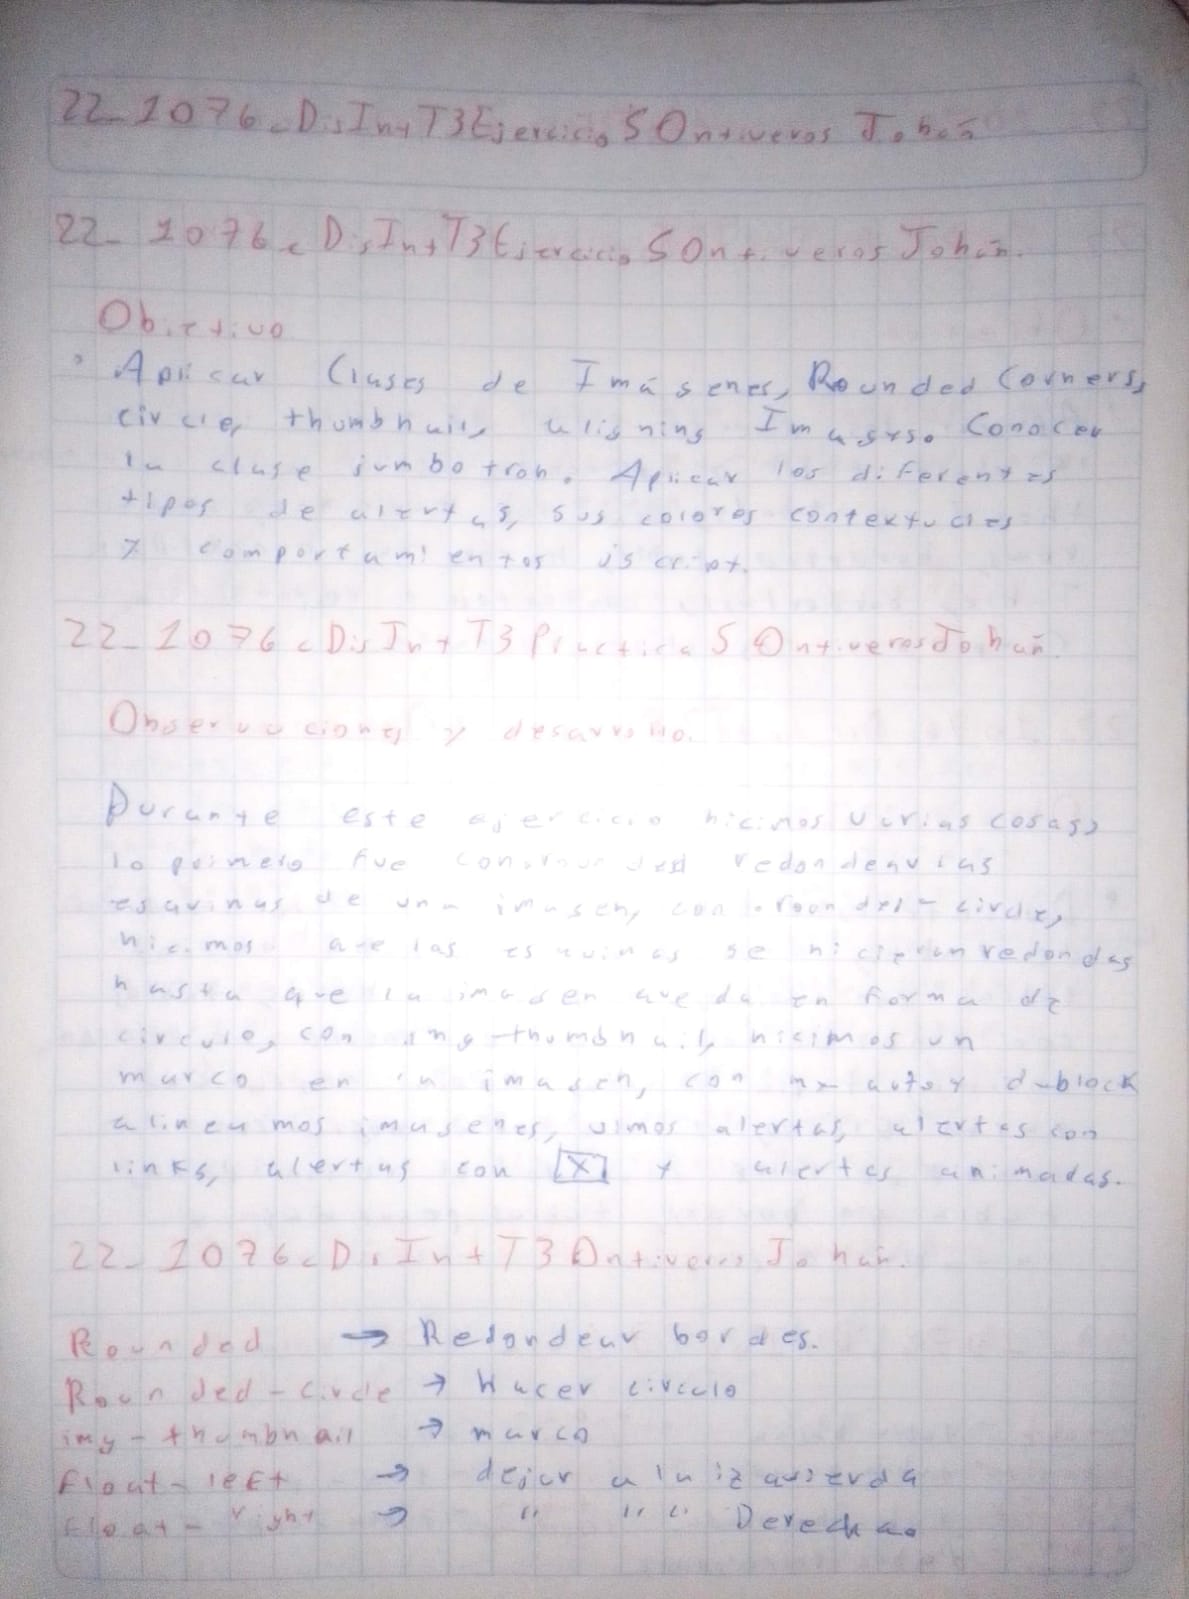 22_1076cDisIntT3Ejercicio5Ontiveros Johan
22_1076cDisIntT3Ejercicio5OntiverosJohan.
Objetivo
Aplicar Clases de Imágenes, Rounded Corners,
circle, thumbnail, aligning Images. Conocer
la clase jumbotron. Aplicar los diferentes
tipos de alertas, sus colores contextuales
y comportamientos jscript.
22_1076cDisIntT3Practica5OntiverosJohan.
Observaciones y desarrollo.
Durante este ejercicio hicimos varias cosas,
lo primero fue con redondear las
esquinas de una imagen, con rounded-circle,
hicimos que las esquinas se hicieran redondas
hasta que la imagen queda en forma de
circulo, con img-thumbnail, hicimos un
marco en la imagen, con mx-auto y d-block
alineamos imagenes, vimos alertas, alertas con
links, alertas con [X] y alertas animadas.
22_1076cDisIntT3Ontiveros Johan.
Rounded → Redondear bordes.
Rounded-circle → Hacer circulo
img-thumbnail → marco
float-left → dejar a la izquierda
float-right → " " " Derecha.